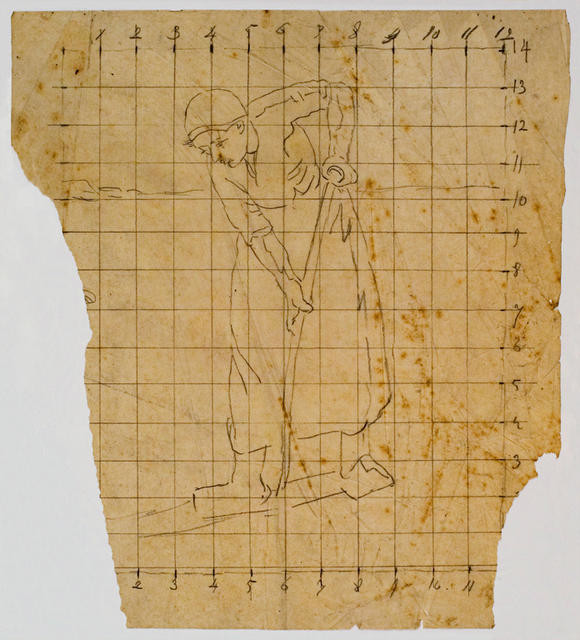 1 2 3 4 5 6 7 8 9 10 11 12
14
13
12
11
10
9
8
7
6
5
4
3
2 3 4 5 6 7 8 9 10 11